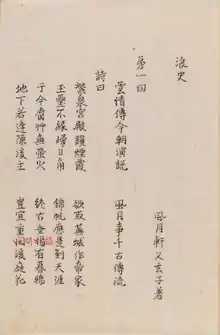 浪史
風月軒又玄子著
第一回
雲情傳今朝演說　風月事千古傳流
詩曰
紫泉宮殿鎖煙霞　欲取蕪城作帝家
玉璽不緣歸日角　錦帆應是到天涯
于今腐艸無螢火　終古垂楊有暮鴉
地下若逢陳後主　豈宜重問後庭花